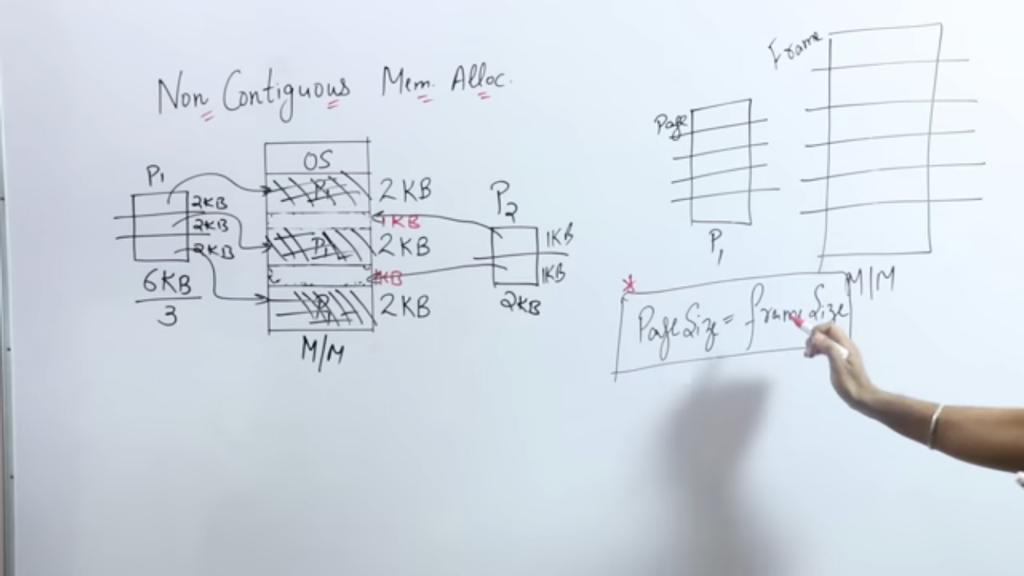 Non Contiguous Mem. Alloc.
P1
2KB
2KB
2KB
6KB
3
OS
P1
2KB
1KB
P1
2KB
1KB
P1
2KB
M/M
P2
1KB
1KB
2KB
Page
P1
Frame
M/M
* Page Size = frame Size